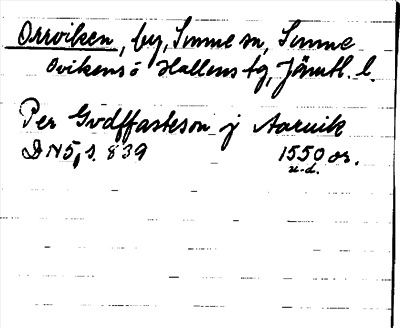 Orrviken, by, Sunne sn, Sunne
Ovikens o Hallens tg, Jämtl. l.
Per Gvdffasteson j Aarvik
DN 5, s. 839 1550 or.
u.d.